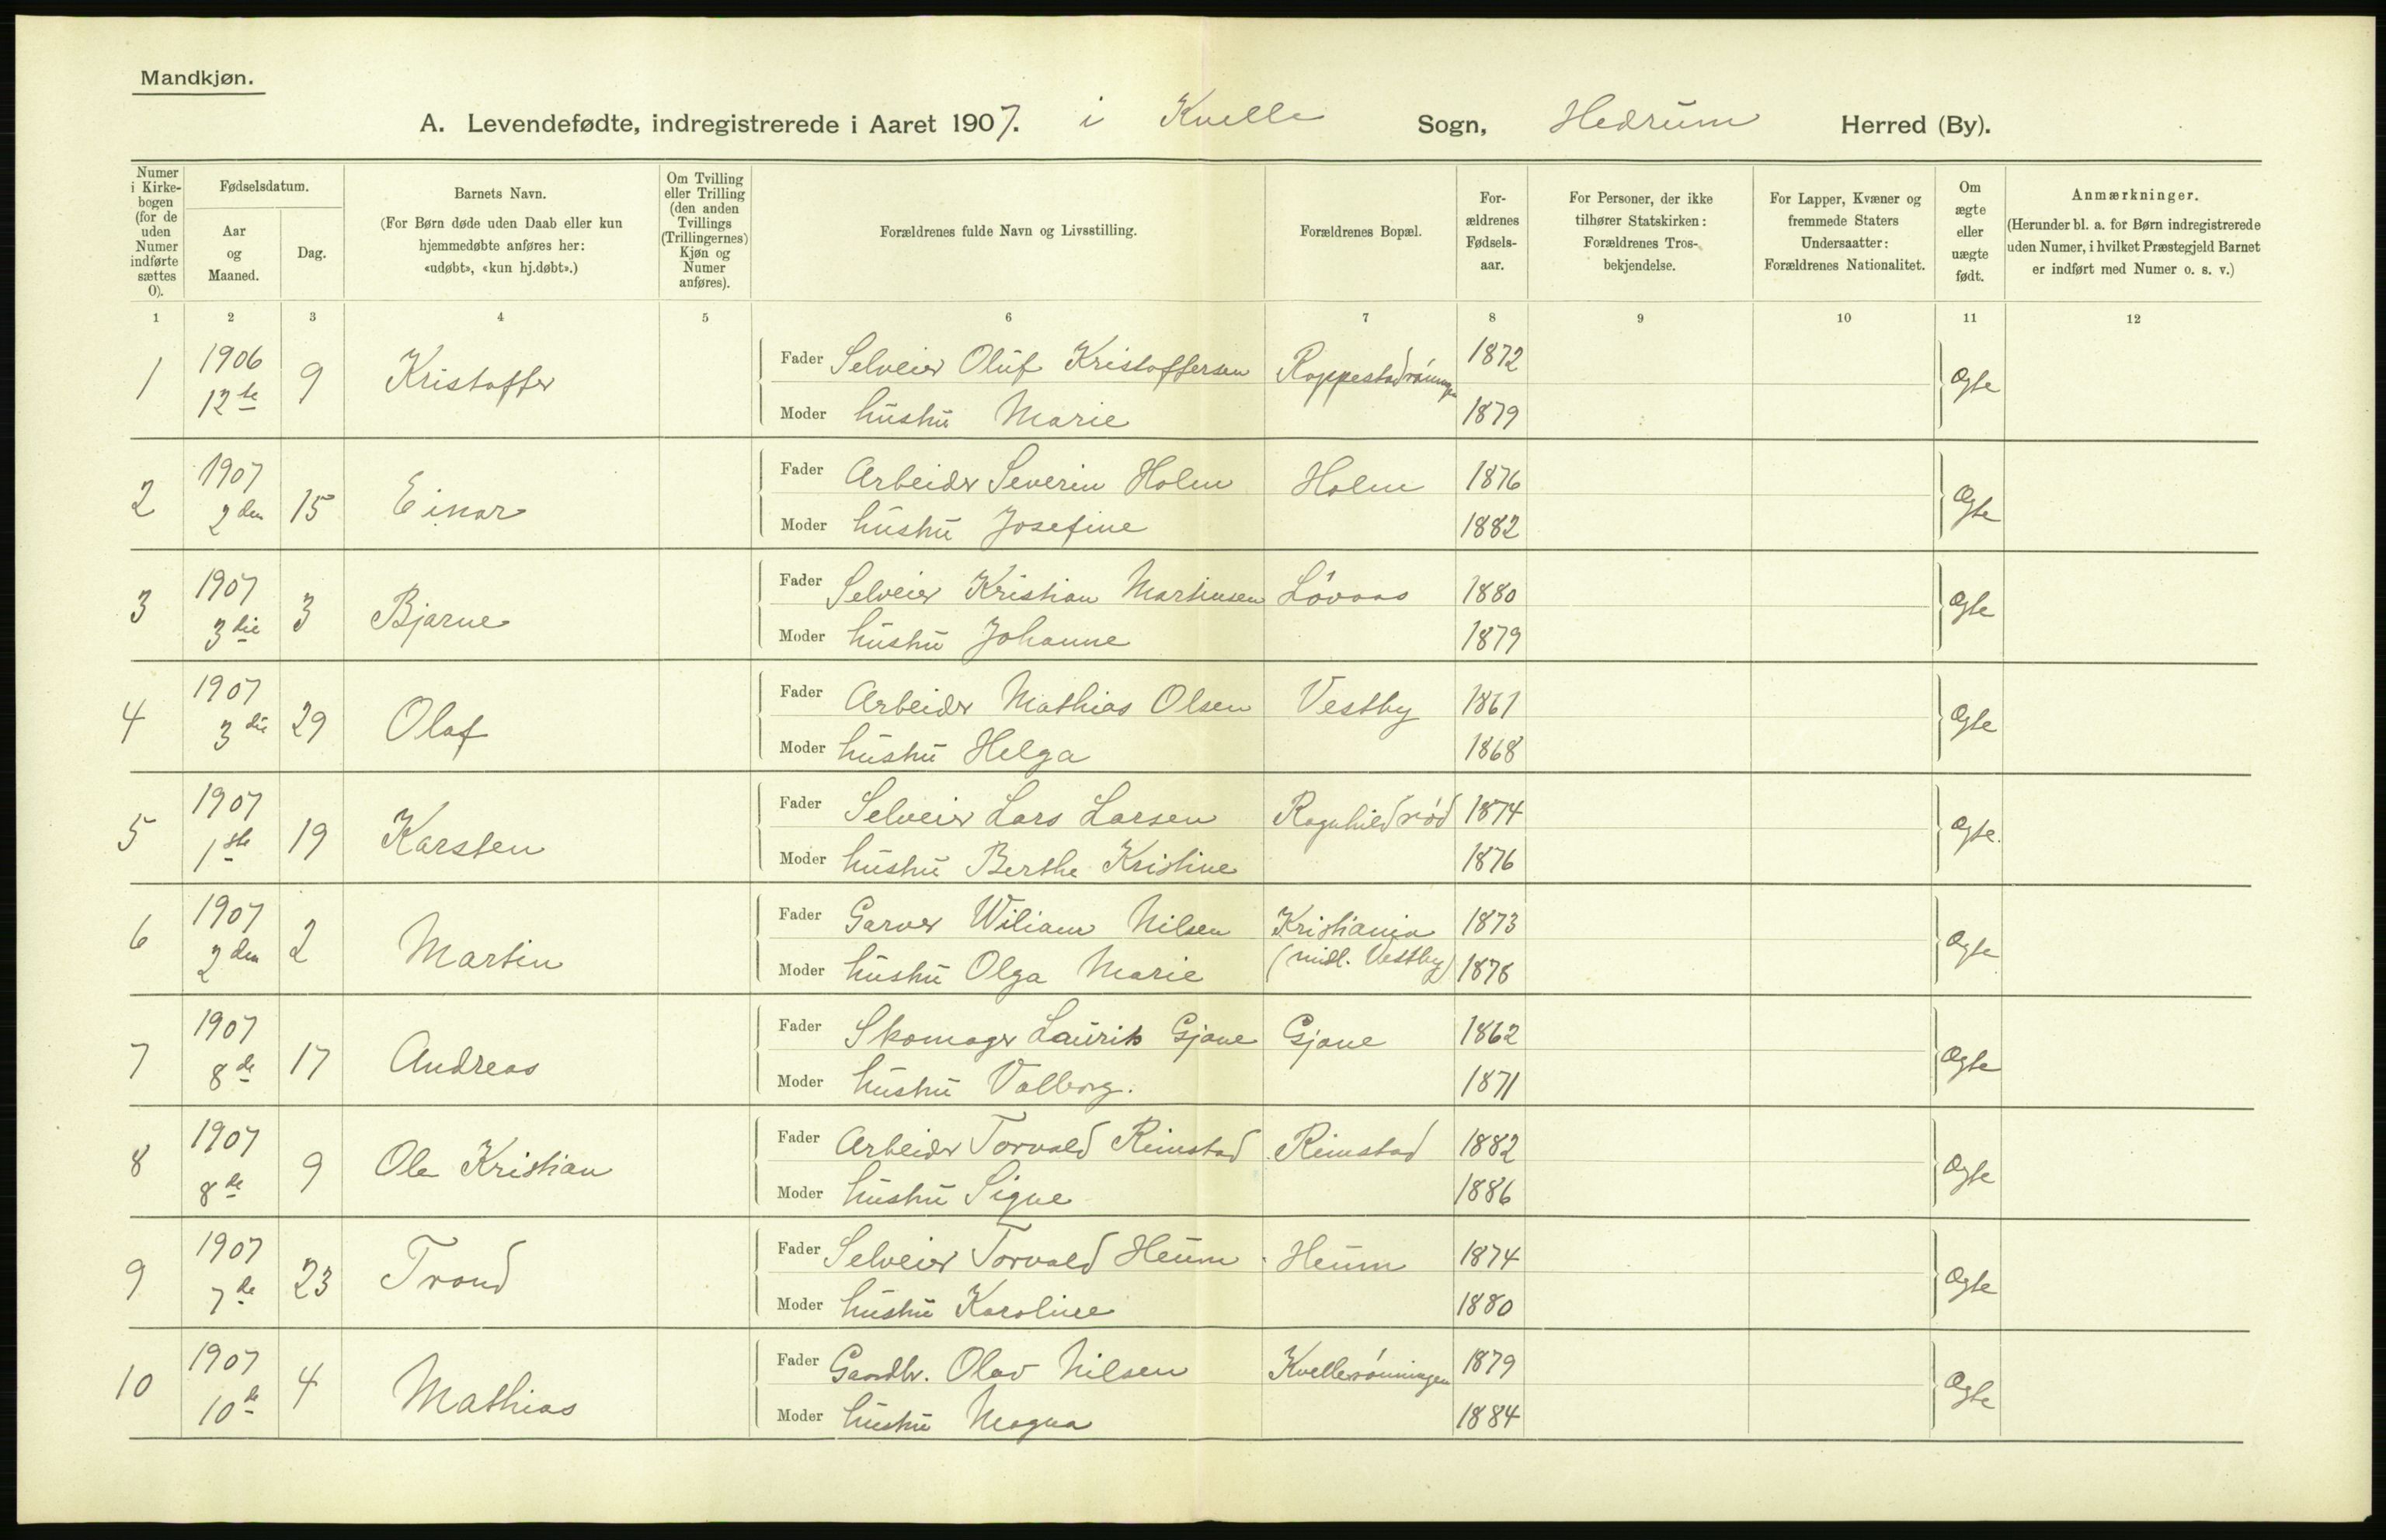 Mandkjøn.
A. Levendefødte, indregistrerede i Aaret 1907. i Kvelle Sogn, Hedrum Herred (By).
Numer i Kirkebogen (for de uden Numer indførte sættes 0).
Fødselsdatum.
Aar og Maaned.
Dag.
Barnets Navn.
(For Børn døde uden Daab eller kun hjemmedøbte anføres her: «udøbt», «kun hj.døbt».)
Om Tvilling eller Trilling (den anden Tvillings (Trillingernes) Kjøn og Numer anføres).
Forældrenes fulde Navn og Livsstilling.
Forældrenes Bopæl.
Forældrenes Fødselsaar.
For Personer, der ikke tilhører Statskirken: Forældrenes Trosbekjendelse.
For Lapper, Kvæner og fremmede Staters Undersaatter: Forældrenes Nationalitet.
Om ægte eller uægte født.
Anmærkninger.
(Herunder bl. a. for Børn indregistrerede uden Numer, i hvilket Præstegjeld Barnet er indført med Numer o. s. v.)
1 2 3 4 5 6 7 8 9 10 11 12
1 1906 12te 9 Kristoffer Fader Selveier Oluf Kristoffersen Roppestadrønningen 1872 Ægte
Moder hustru Marie 1879
2 1907 2den 15 Einar Fader Arbeider Severin Holm Holm 1876 Ægte
Moder hustru Josefine 1882
3 1907 3die 3 Bjarne Fader Selveier Kristian Martinsen Løvaas 1880 Ægte
Moder hustru Johanne 1879
4 1907 3die 29 Olaf Fader Arbeider Mathias Olsen Vestby 1861 Ægte
Moder hustru Helga 1868
5 1907 1ste 19 Karsten Fader Selveier Lars Larsen Ragnhildrød 1874 Ægte.
Moder hustru Berthe Kristine 1876
6 1907 2den 2 Martin Fader Garver Wiliam Nilsen Kristiania 1873 Ægte
Moder hustru Olga Marie (midl. Vestby) 1878
7 1907 8de 17 Andreas Fader Skomager Laurits Gjone Gjone 1862 Ægte
Moder hustru Valborg. 1871
8 1907 8de 9 Ole Kristian Fader Arbeider Torvald Rimstad Rimstad 1882 Ægte
Moder hustru Signe 1886
9 1907 7de 23 Trond Fader Selveier Torvald Heum Heum 1874 Ægte
Moder hustru Karoline 1880
10 1907 10de 4 Mathias Fader Gaardbr. Olav Nilsen Kvellerønningen 1879 Ægte
Moder hustru Magna 1884